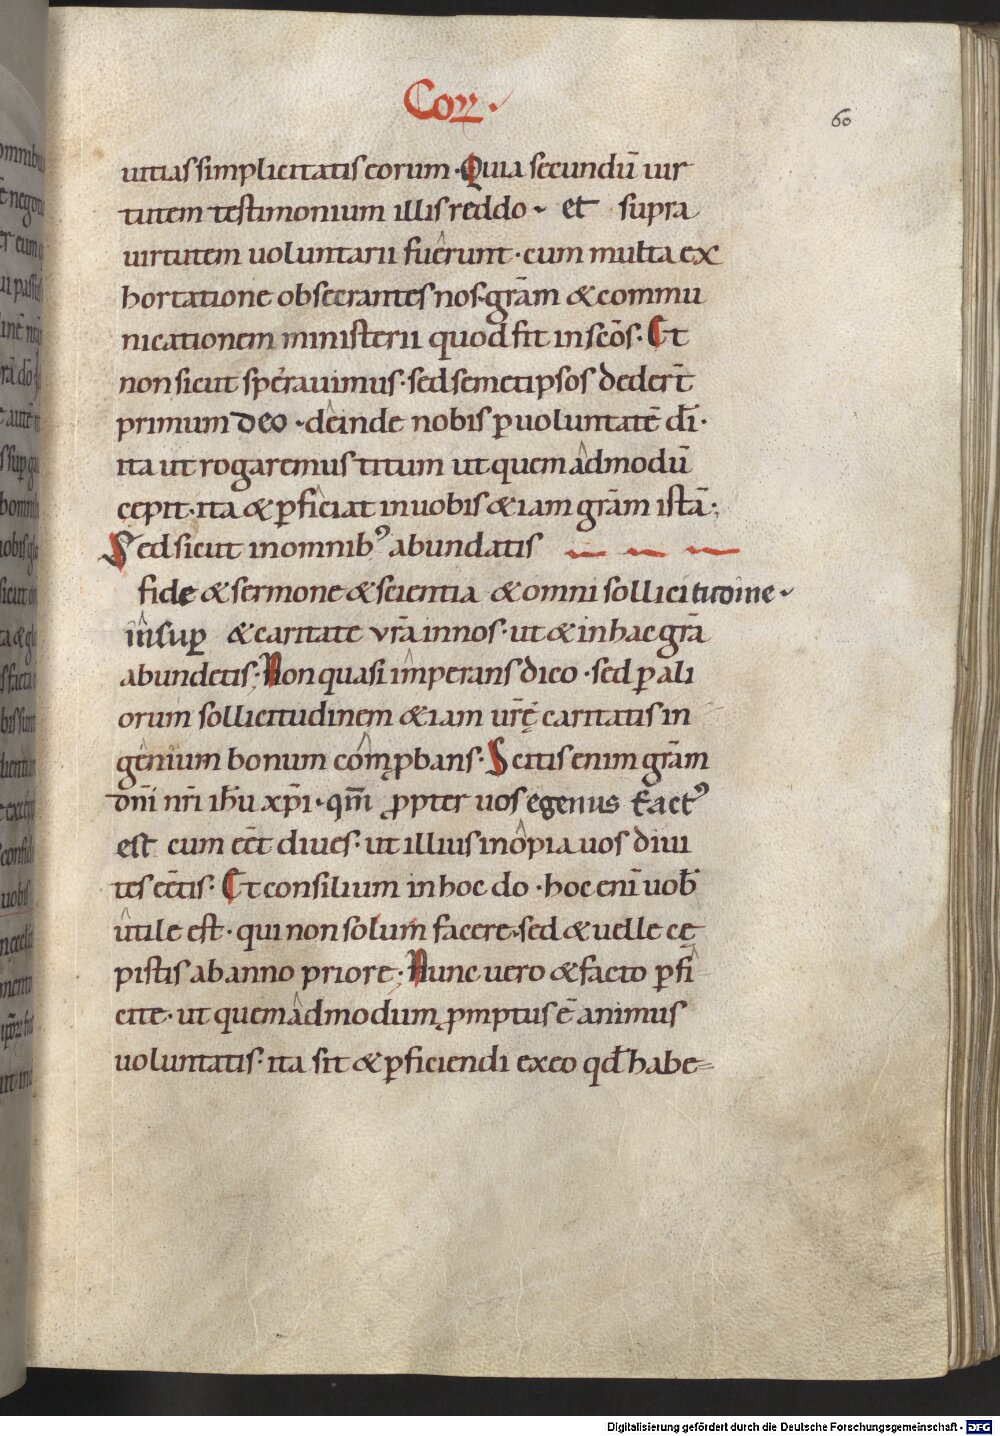 Cor̄.
60
uitias simplicitatis eorum. Quia secundū uir
tutem testimonium illis reddo. et supra
uirtutem uoluntarii fuerunt. cum multa ex
hortatione obsecrantes nos. grām & commu
nicationem ministerii quod fit in scōs. Et
non sicut sperauimus. sed semetipsos dedert̄
primum deo. deinde nobis p uoluntatē dī.
ita ut rogaremus titum ut quem admodū
cepit. ita & pficiat in uobis & iam grām istā.
Sed sicut in omnib' abundatis
fide & sermone & scientia & omni sollicitudine.
insup & caritate vrā in nos. ut & in hac grā
abundetis. Non quasi imperans dico. sed p ali
orum sollicitudinem & iam urę̄ caritatis in
genium bonum comp̱bans. Scitis enim grām
dnī nrī ihū xpī. qm̄ ppter uos egenus fact'
est cum eēt diues. ut illius inopia uos diui
tes eētis. Et consilium in hoc do. hoc enī uob̄
utile est. qui non solum facere. sed & uelle cę
pistis ab anno priore. Nunc uero & facto pfi
cite. ut quem admodum pmptus ē animus
uoluntatis. ita sit & pficiendi ex eo qd̄ habe=
Digitalisierung gefördert durch die Deutsche Forschungsgemeinschaft - DFG